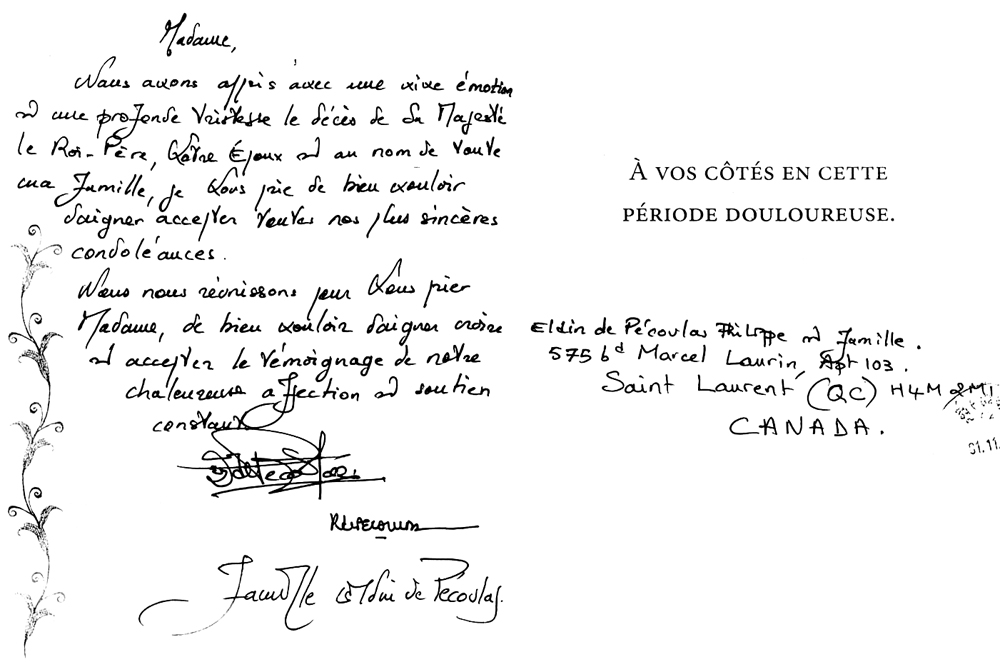 Madame,
Nous avons appris avec une vive émotion
et une profonde tristesse le décès de Sa Majesté
le Roi-Père, Votre Époux et au nom de toute
ma famille, je Vous prie de bien vouloir
daigner accepter toutes nos plus sincères
condoléances.
Nous nous réunissons pour Vous prier
Madame, de bien vouloir daigner croire
et accepter le témoignage de notre
chaleureuse affection et soutien
constant
Famille Eldin de Pécoulas.
À VOS CÔTÉS EN CETTE
PÉRIODE DOULOUREUSE.
Eldin de Pécoulas Philippe et famille.
575 bd Marcel Laurin, Apt 103.
Saint Laurent (QC) H4M 2M1
CANADA.